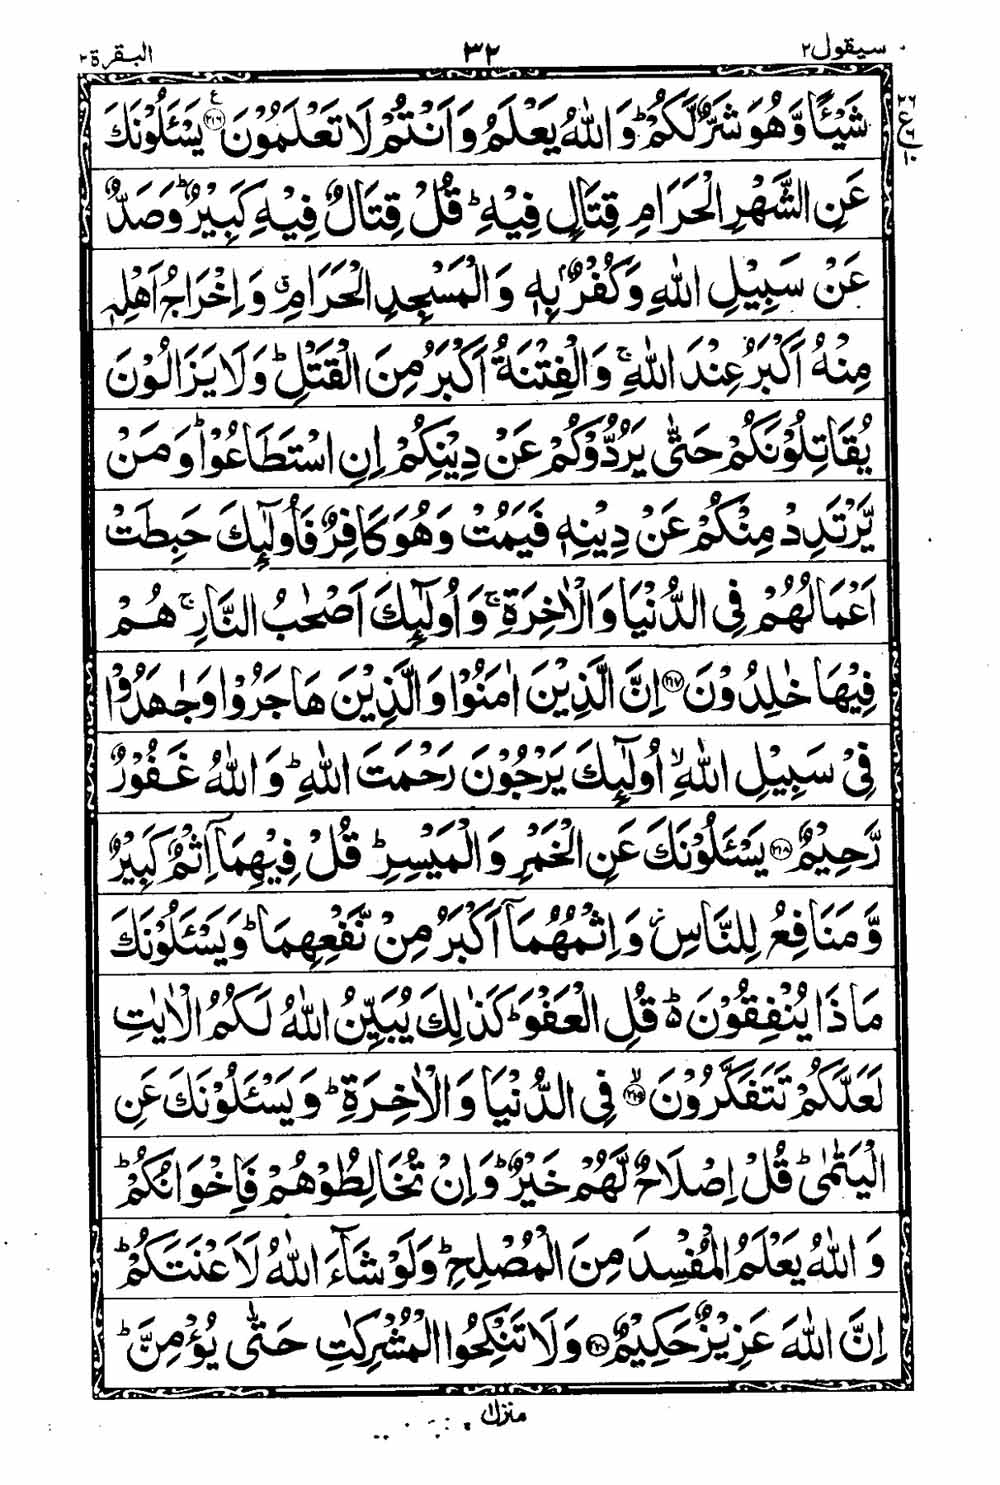 سيقول ٢ ٣٢ البقرة ٢
شَيْـًٔا وَّهُوَ شَرٌّ لَّكُمْ ؕ وَاللّٰهُ يَعْلَمُ وَاَنْتُمْ لَا تَعْلَمُوْنَ ﴿۲۱۶﴾ ع يَسْـَٔلُوْنَكَ
٢٦
ع
٦
١٠
عَنِ الشَّهْرِ الْحَرَامِ قِتَالٍ فِيْهِ ؕ قُلْ قِتَالٌ فِيْهِ كَبِيْرٌ ؕ وَصَدٌّ
عَنْ سَبِيْلِ اللّٰهِ وَكُفْرٌۢ بِهٖ وَالْمَسْجِدِ الْحَرَامِ ۗ وَاِخْرَاجُ اَهْلِهٖ
مِنْهُ اَكْبَرُ عِنْدَ اللّٰهِ ۚ وَالْفِتْنَةُ اَكْبَرُ مِنَ الْقَتْلِ ؕ وَلَا يَزَالُوْنَ
يُقَاتِلُوْنَكُمْ حَتّٰى يَرُدُّوْكُمْ عَنْ دِيْنِكُمْ اِنِ اسْتَطَاعُوْا ؕ وَمَنْ
يَّرْتَدِدْ مِنْكُمْ عَنْ دِيْنِهٖ فَيَمُتْ وَهُوَ كَافِرٌ فَاُولٰٓئِكَ حَبِطَتْ
اَعْمَالُهُمْ فِى الدُّنْيَا وَالْاٰخِرَةِ ۚ وَاُولٰٓئِكَ اَصْحٰبُ النَّارِ ۚ هُمْ
فِيْهَا خٰلِدُوْنَ ﴿۲۱۷﴾ اِنَّ الَّذِيْنَ اٰمَنُوْا وَالَّذِيْنَ هَاجَرُوْا وَجٰهَدُوْا
فِىْ سَبِيْلِ اللّٰهِ ۙ اُولٰٓئِكَ يَرْجُوْنَ رَحْمَتَ اللّٰهِ ؕ وَاللّٰهُ غَفُوْرٌ
رَّحِيْمٌ ﴿۲۱۸﴾ يَسْـَٔلُوْنَكَ عَنِ الْخَمْرِ وَالْمَيْسِرِ ؕ قُلْ فِيْهِمَآ اِثْمٌ كَبِيْرٌ
وَّمَنَافِعُ لِلنَّاسِ ؗ وَاِثْمُهُمَآ اَكْبَرُ مِنْ نَّفْعِهِمَا ؕ وَيَسْـَٔلُوْنَكَ
مَاذَا يُنْفِقُوْنَ ؕ۬ قُلِ الْعَفْوَ ؕ كَذٰلِكَ يُبَيِّنُ اللّٰهُ لَكُمُ الْاٰيٰتِ
لَعَلَّكُمْ تَتَفَكَّرُوْنَ ۙ﴿۲۱۹﴾ فِى الدُّنْيَا وَالْاٰخِرَةِ ؕ وَيَسْـَٔلُوْنَكَ عَنِ
الْيَتٰمٰى ؕ قُلْ اِصْلَاحٌ لَّهُمْ خَيْرٌ ؕ وَاِنْ تُخَالِطُوْهُمْ فَاِخْوَانُكُمْ ؕ
وَاللّٰهُ يَعْلَمُ الْمُفْسِدَ مِنَ الْمُصْلِحِ ؕ وَلَوْ شَآءَ اللّٰهُ لَاَعْنَتَكُمْ ؕ
اِنَّ اللّٰهَ عَزِيْزٌ حَكِيْمٌ ﴿۲۲۰﴾ وَلَا تَنْكِحُوا الْمُشْرِكٰتِ حَتّٰى يُؤْمِنَّ ؕ
منزل ١